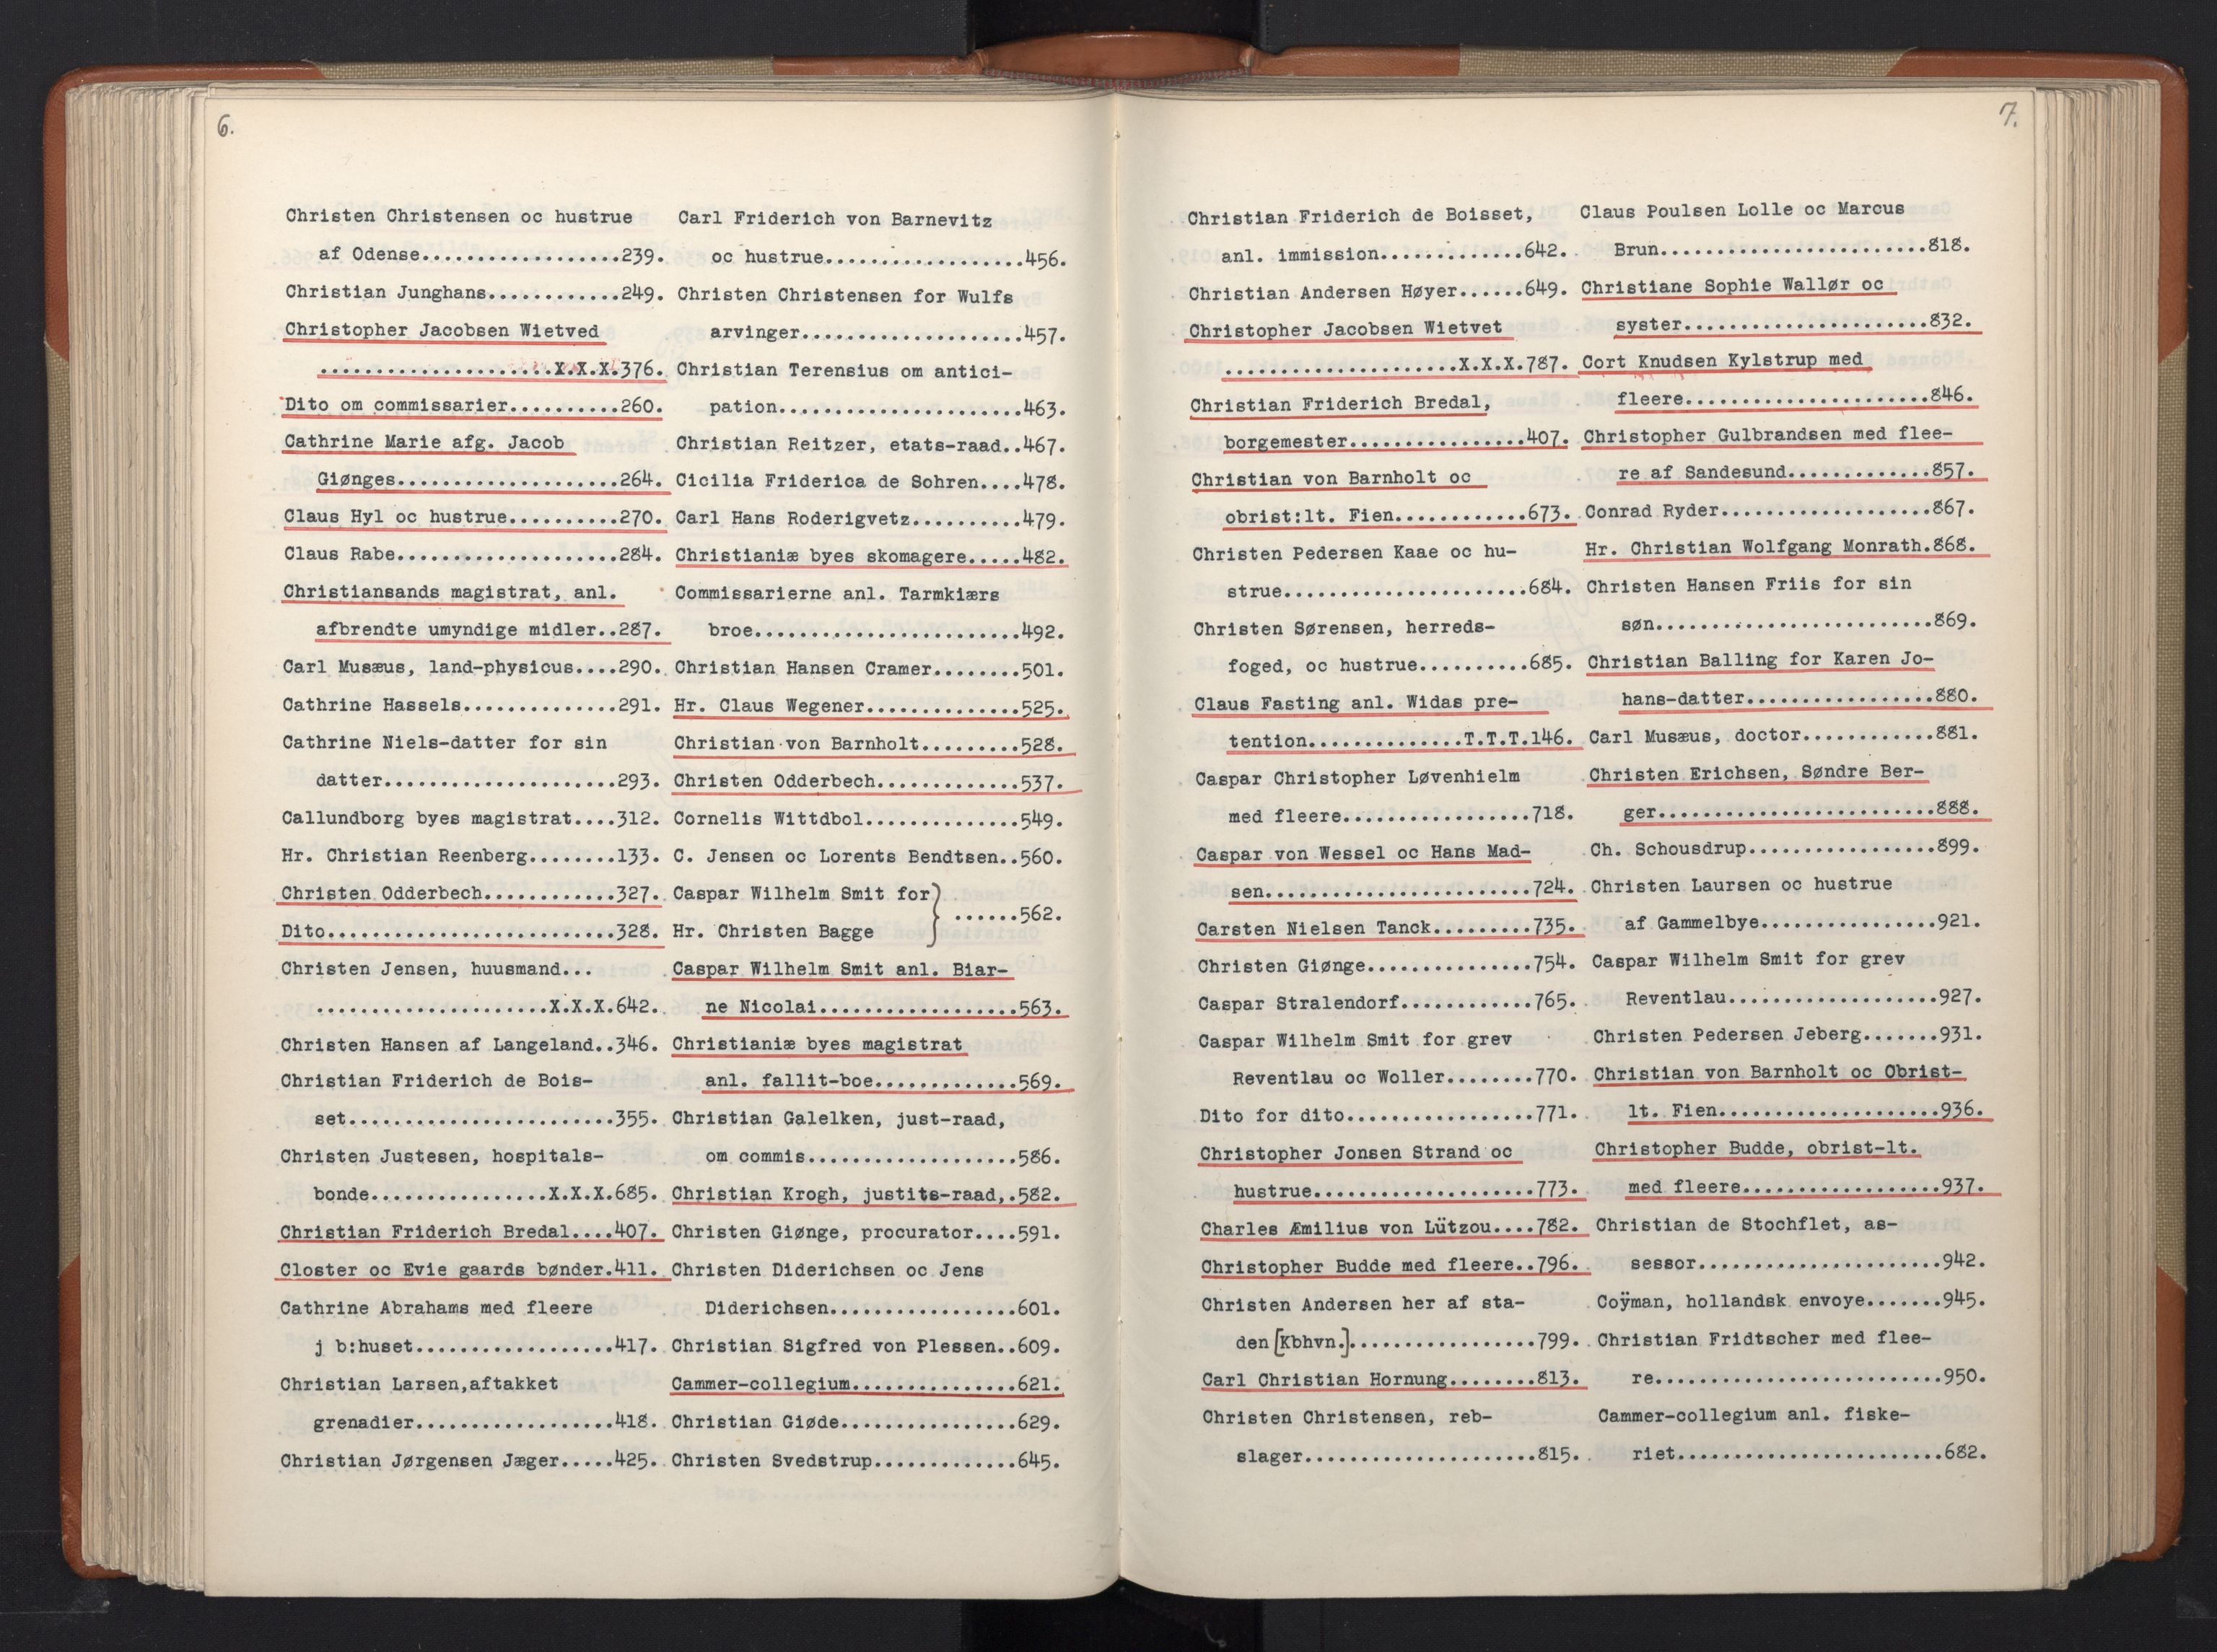 6.
Christen Christensen oc hustrue
af Odense..................239.
Christian Junghans............249.
Christopher Jacobsen Wietved
.....................X.X.X.376.
Dito om commissarier..........260.
Cathrine Marie afg. Jacob
Giønges....................264.
Claus Hyl oc hustrue..........270.
Claus Rabe....................284.
Christiansands magistrat, anl.
afbrendte umyndige midler..287.
Carl Musæus, land-physicus....290.
Cathrine Hassels..............291.
Cathrine Niels-datter for sin
datter.....................293.
Callundborg byes magistrat....312.
Hr. Christian Reenberg........133.
Christen Odderbech............327.
Dito..........................328.
Christen Jensen, huusmand...
.....................X.X.X.642.
Christen Hansen af Langeland..346.
Christian Friderich de Bois-
set........................355.
Christen Justesen, hospitals-
bonde................X.X.X.685.
Christian Friderich Bredal....407.
Closter oc Evie gaards bønder.411.
Cathrine Abrahams med fleere
j b:huset..................417.
Christian Larsen,aftakket
grenadier..................418.
Christian Jørgensen Jæger.....425.
Carl Friderich von Barnevitz
oc hustrue..................456.
Christen Christensen for Wulfs
arvinger....................457.
Christian Terensius om antici-
pation......................463.
Christian Reitzer, etats-raad..467.
Cicilia Friderica de Sohren....478.
Carl Hans Roderigvetz..........479.
Christianiæ byes skomagere.....482.
Commissarierne anl. Tarmkiærs
broe........................492.
Christian Hansen Cramer........501.
Hr. Claus Wegener..............525.
Christian von Barnholt.........528.
Christen Odderbech.............537.
Cornelis Wittdbol..............549.
C. Jensen oc Lorents Bendtsen..560.
Caspar Wilhelm Smit for
Hr. Christen Bagge } ......562.
Caspar Wilhelm Smit anl. Biar-
ne Nicolai..................563.
Christianiæ byes magistrat
anl. fallit-boe.............569.
Christian Galelken, just-raad,
om commis...................586.
Christian Krogh, justits-raad,.582.
Christen Giønge, procurator....591.
Christen Diderichsen oc Jens
Diderichsen.................601.
Christian Sigfred von Plessen..609.
Cammer-collegium...............621.
Christian Giøde................629.
Christen Svedstrup.............645.
7.
Christian Friderich de Boisset,
anl. immission.............642.
Christian Andersen Høyer......649.
Christopher Jacobsen Wietvet
.....................X.X.X.787.
Christian Friderich Bredal,
borgemester................407.
Christian von Barnholt oc
obrist:lt. Fien............673.
Christen Pedersen Kaae oc hu-
strue......................684.
Christen Sørensen, herreds-
foged, oc hustrue..........685.
Claus Fasting anl. Widas pre-
tention..............T.T.T.146.
Caspar Christopher Løvenhielm
med fleere.................718.
Caspar von Wessel oc Hans Mad-
sen........................724.
Carsten Nielsen Tanck.........735.
Christen Giønge...............754.
Caspar Stralendorf............765.
Caspar Wilhelm Smit for grev
Reventlau oc Woller........770.
Dito for dito.................771.
Christopher Jonsen Strand oc
hustrue....................773.
Charles Æmilius von Lützou....782.
Christopher Budde med fleere..796.
Christen Andersen her af sta-
den [Kbhvn.].................799.
Carl Christian Hornung........813.
Christen Christensen, reb-
slager.....................815.
Claus Poulsen Lolle oc Marcus
Brun........................818.
Christiane Sophie Wallør oc
syster......................832.
Cort Knudsen Kylstrup med
fleere......................846.
Christopher Gulbrandsen med flee-
re af Sandesund.............857.
Conrad Ryder...................867.
Hr. Christian Wolfgang Monrath.868.
Christen Hansen Friis for sin
søn.........................869.
Christian Balling for Karen Jo-
hans-datter.................880.
Carl Musæus, doctor............881.
Christen Erichsen, Søndre Ber-
ger.........................888.
Ch. Schousdrup.................899.
Christen Laursen oc hustrue
af Gammelbye................921.
Caspar Wilhelm Smit for grev
Reventlau...................927.
Christen Pedersen Jeberg.......931.
Christian von Barnholt oc Obrist-
lt. Fien....................936.
Christopher Budde, obrist-lt.
med fleere..................937.
Christian de Stochflet, as-
sessor......................942.
Coÿman, hollandsk envoye.......945.
Christian Fridtscher med flee-
re..........................950.
Cammer-collegium anl. fiske-
riet........................682.